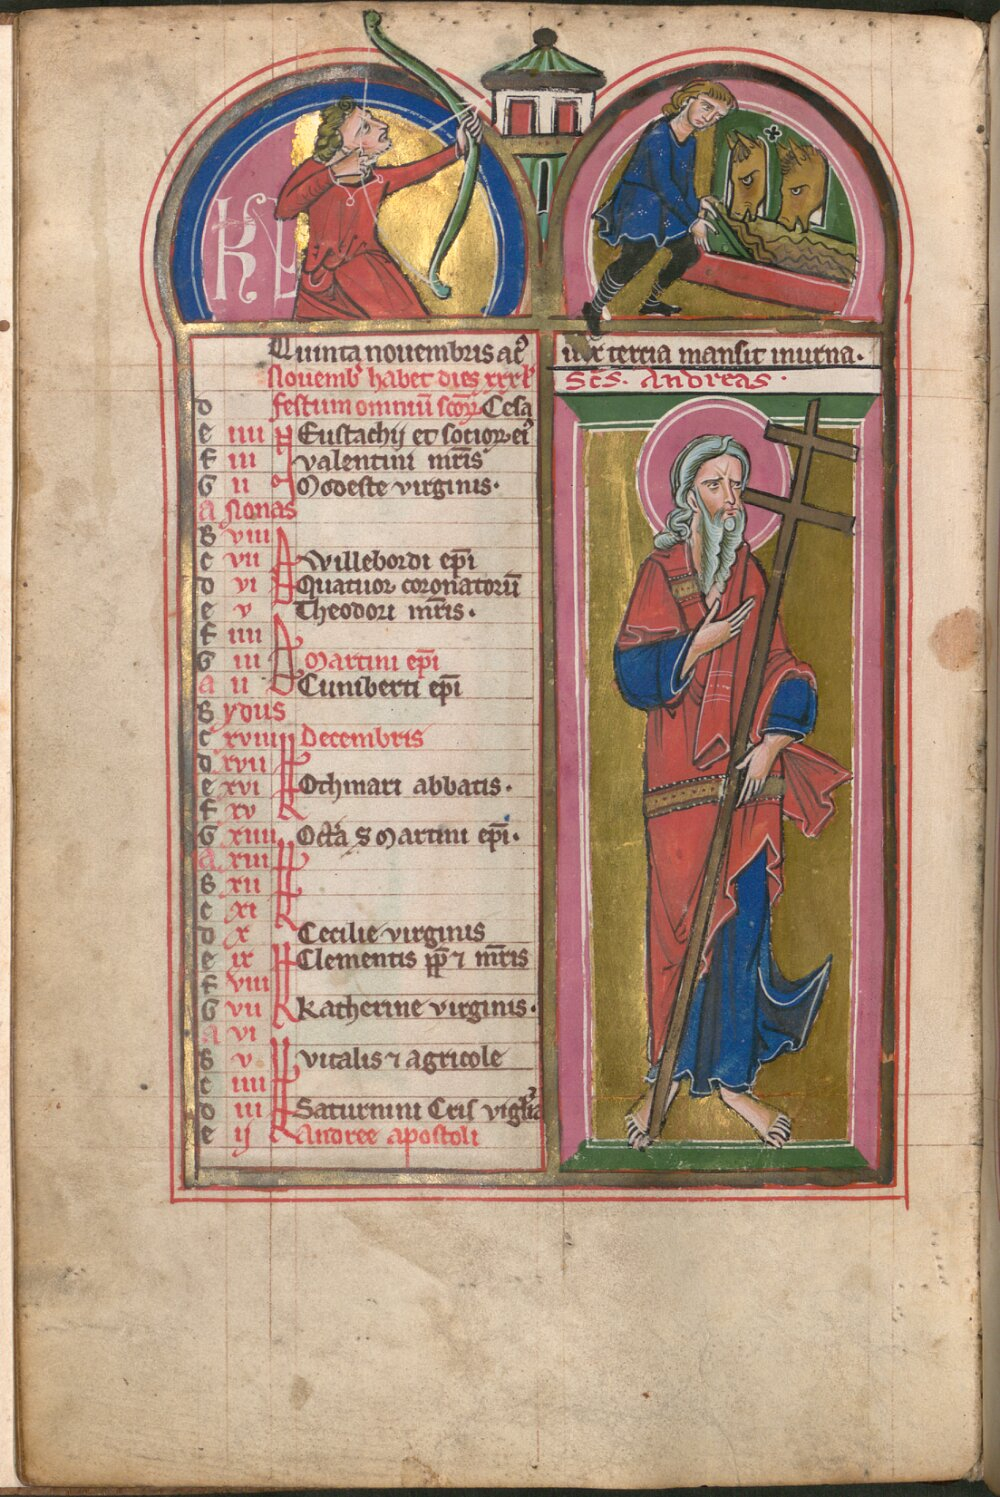 KL
Quinta nouembris ac᷑ uix tercia mansit inurna.
Nouemb᷑ habet dies xxx l᷑
Scs. Andreas.
d festum omniū scōꝝ Cesa
e iiii N Eustachij et socioꝝ ei᷑
f iii valentini mr̄is
G ii Modeste virginis.
A Nonas
B viii
c vii Willebordi ep̄i
d vi Quatuor coronatorū
e v Theodori mr̄is.
f iiii
G iii Martini ep̄i
a ii Cuniberti ep̄i
B ydus
c xviii Decembris
d xvii
e xvi Othmari abbatis.
f xv
G xiiii Octā S Martini ep̄i.
a xiii
B xii
c xi
d x Cecilie virginis
e ix Clementis p̄p ⁊ mr̄is
f viii
G vii Katherine virginis.
A vi
B v vitalis ⁊ agricole
c iiii
d iii Saturnini Cris vigl̄ia
e ij Andree apostoli